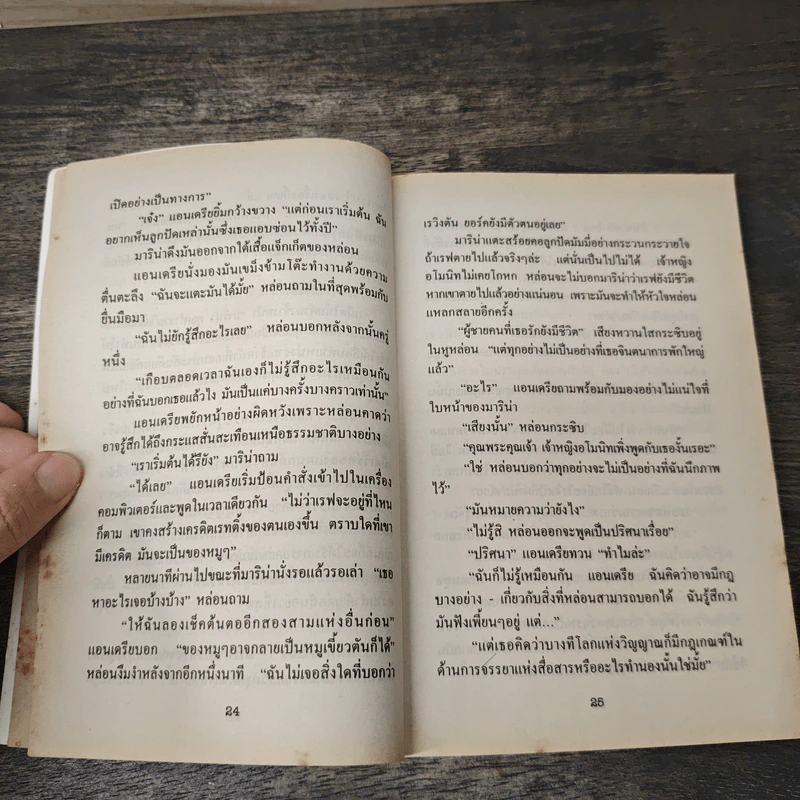 เปิดอย่างเป็นทางการ”
“เจ๋ง” แอนเดรียยิ้มกว้างขวาง “แต่ก่อนเราเริ่มต้น ฉัน
อยากเห็นลูกปัดเหล่านั้นซึ่งเธอแอบซ่อนไว้ทั้งปี”
มาริน่าดึงมันออกจากใต้เสื้อแจ็กเก็ตของหล่อน
แอนเดรียนั่งมองมันเขม็งข้ามโต๊ะทำงานด้วยความ
ตื่นตะลึง “ฉันจะแตะมันได้มั้ย” หล่อนถามในที่สุดพร้อมกับ
ยื่นมือมา
“ฉันไม่ยักรู้สึกอะไรเลย” หล่อนบอกหลังจากนั้นครู่
หนึ่ง
“เกือบตลอดเวลาฉันเองก็ไม่รู้สึกอะไรเหมือนกัน
อย่างที่ฉันบอกเธอแล้วไง มันเป็นแค่บางครั้งบางคราวเท่านั้น”
แอนเดรียพยักหน้าอย่างผิดหวังเพราะหล่อนคาดว่า
อาจรู้สึกได้ถึงกระแสสั่นสะเทือนเหนือธรรมชาติบางอย่าง
“เราเริ่มต้นได้รึยัง” มาริน่าถาม
“ได้เลย” แอนเดรียเริ่มป้อนคำสั่งเข้าไปในเครื่อง
คอมพิวเตอร์และพูดในเวลาเดียวกัน “ไม่ว่าเรฟจะอยู่ที่ไหน
ก็ตาม เขาคงสร้างเครดิตเรทติ้งของตนเองขึ้น ตราบใดที่เขา
มีเครดิต มันจะเป็นของหมูๆ”
หลายนาทีผ่านไปขณะที่มาริน่านั่งรอแล้วรอเล่า “เธอ
หาอะไรเจอบ้างบ้าง” หล่อนถาม
“ให้ฉันลองเช็คต้นตออีกสองสามแห่งอื่นก่อน”
แอนเดรียบอก “ของหมูๆอาจกลายเป็นหมูเขี้ยวตันก็ได้”
หล่อนงึมงำหลังจากอีกหนึ่งนาที “ฉันไม่เจอสิ่งใดที่บอกว่า
24
เรวิงตัน ยอร์คยังมีตัวตนอยู่เลย”
มาริน่าแตะสร้อยคอลูกปัดมัมมี่อย่างกระวนกระวายใจ
ถ้าเรฟตายไปแล้วจริงๆล่ะ แต่นั่นเป็นไปไม่ได้ เจ้าหญิง
อโมนิทไม่เคยโกหก หล่อนจะไม่บอกมาริน่าว่าเรฟยังมีชีวิต
หากเขาตายไปแล้วอย่างแน่นอน เพราะมันจะทำให้หัวใจหล่อน
แหลกสลายอีกครั้ง
“ผู้ชายคนที่เธอรักยังมีชีวิต” เสียงหวานใสกระซิบอยู่
ในหูหล่อน “แต่ทุกอย่างไม่เป็นอย่างที่เธอจินตนาการพักใหญ่
แล้ว”
“อะไร” แอนเดรียถามพร้อมกับมองอย่างไม่แน่ใจที่
ใบหน้าของมาริน่า
“เสียงนั้น” หล่อนกระซิบ
“คุณพระคุณเจ้า เจ้าหญิงอโมนิทเพิ่งพูดกับเธองั้นเรอะ”
“ใช่ หล่อนบอกว่าทุกอย่างจะไม่เป็นอย่างที่ฉันนึกภาพ
ไว้”
“มันหมายความว่ายังไง”
“ไม่รู้สิ หล่อนออกจะพูดเป็นปริศนาเรื่อย”
“ปริศนา” แอนเดรียทวน “ทำไมล่ะ”
“ฉันก็ไม่รู้เหมือนกัน แอนเดรีย ฉันคิดว่าอาจมีกฎ
บางอย่าง - เกี่ยวกับสิ่งที่หล่อนสามารถบอกได้ ฉันรู้สึกว่า
มันฟังเพี้ยนๆอยู่ แต่...”
“แต่เธอคิดว่าบางทีโลกแห่งวิญญาณก็มีกฎเกณฑ์ใน
ด้านการจรรยาแห่งสื่อสารหรืออะไรทำนองนั้นใช่มั้ย”
25